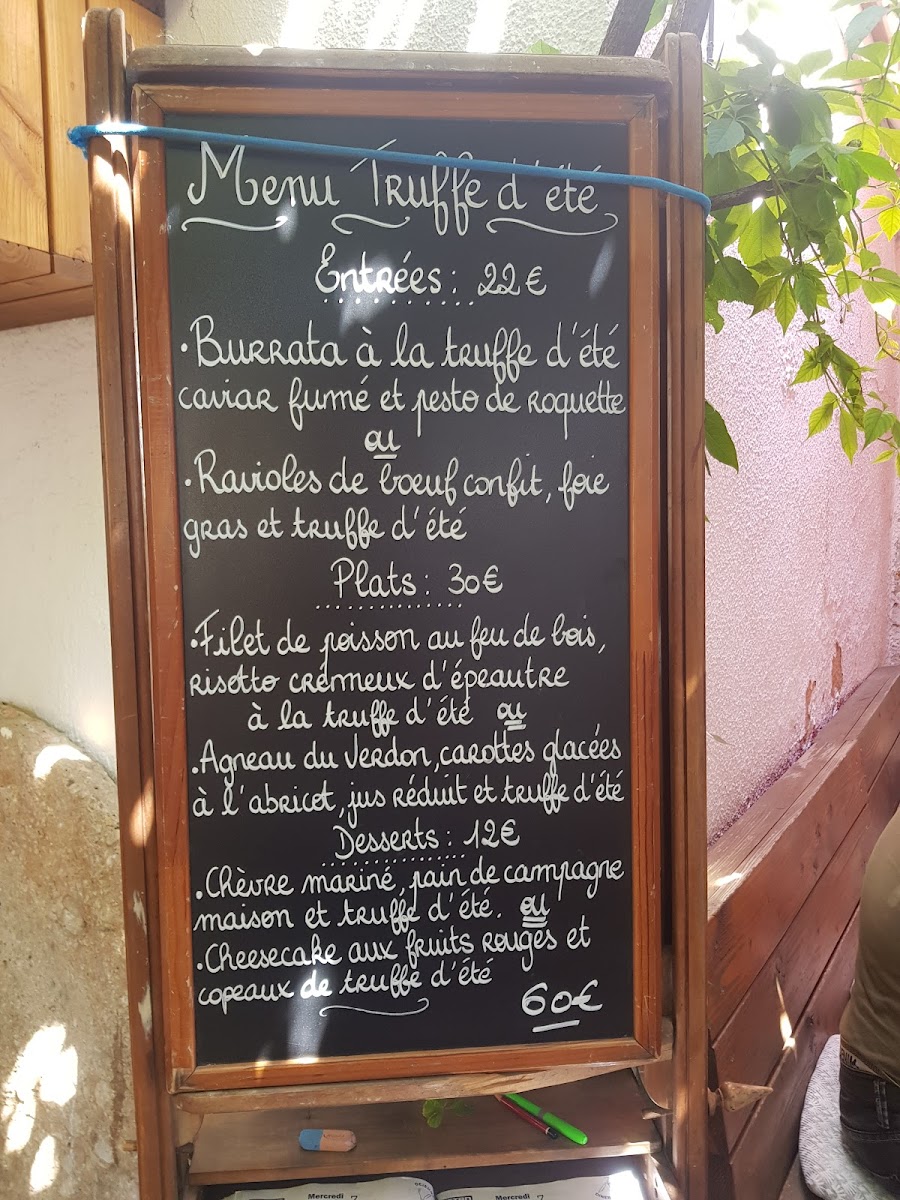 Menu Truffe d'été
Entrées : 22€
•Burrata à la truffe d'été
caviar fumé et pesto de roquette
ou
•Ravioles de boeuf confit, foie
gras et truffe d'été
Plats : 30€
•Filet de poisson au feu de bois,
risotto crémeux d'épeautre
à la truffe d'été ou
•Agneau du Verdon, carottes glacées
à l'abricot, jus réduit et truffe d'été
Desserts : 12€
•Chèvre mariné, pain de campagne
maison et truffe d'été. ou
•Cheesecake aux fruits rouges et
copeaux de truffe d'été
60€
Mercredi 7 Mercredi 7